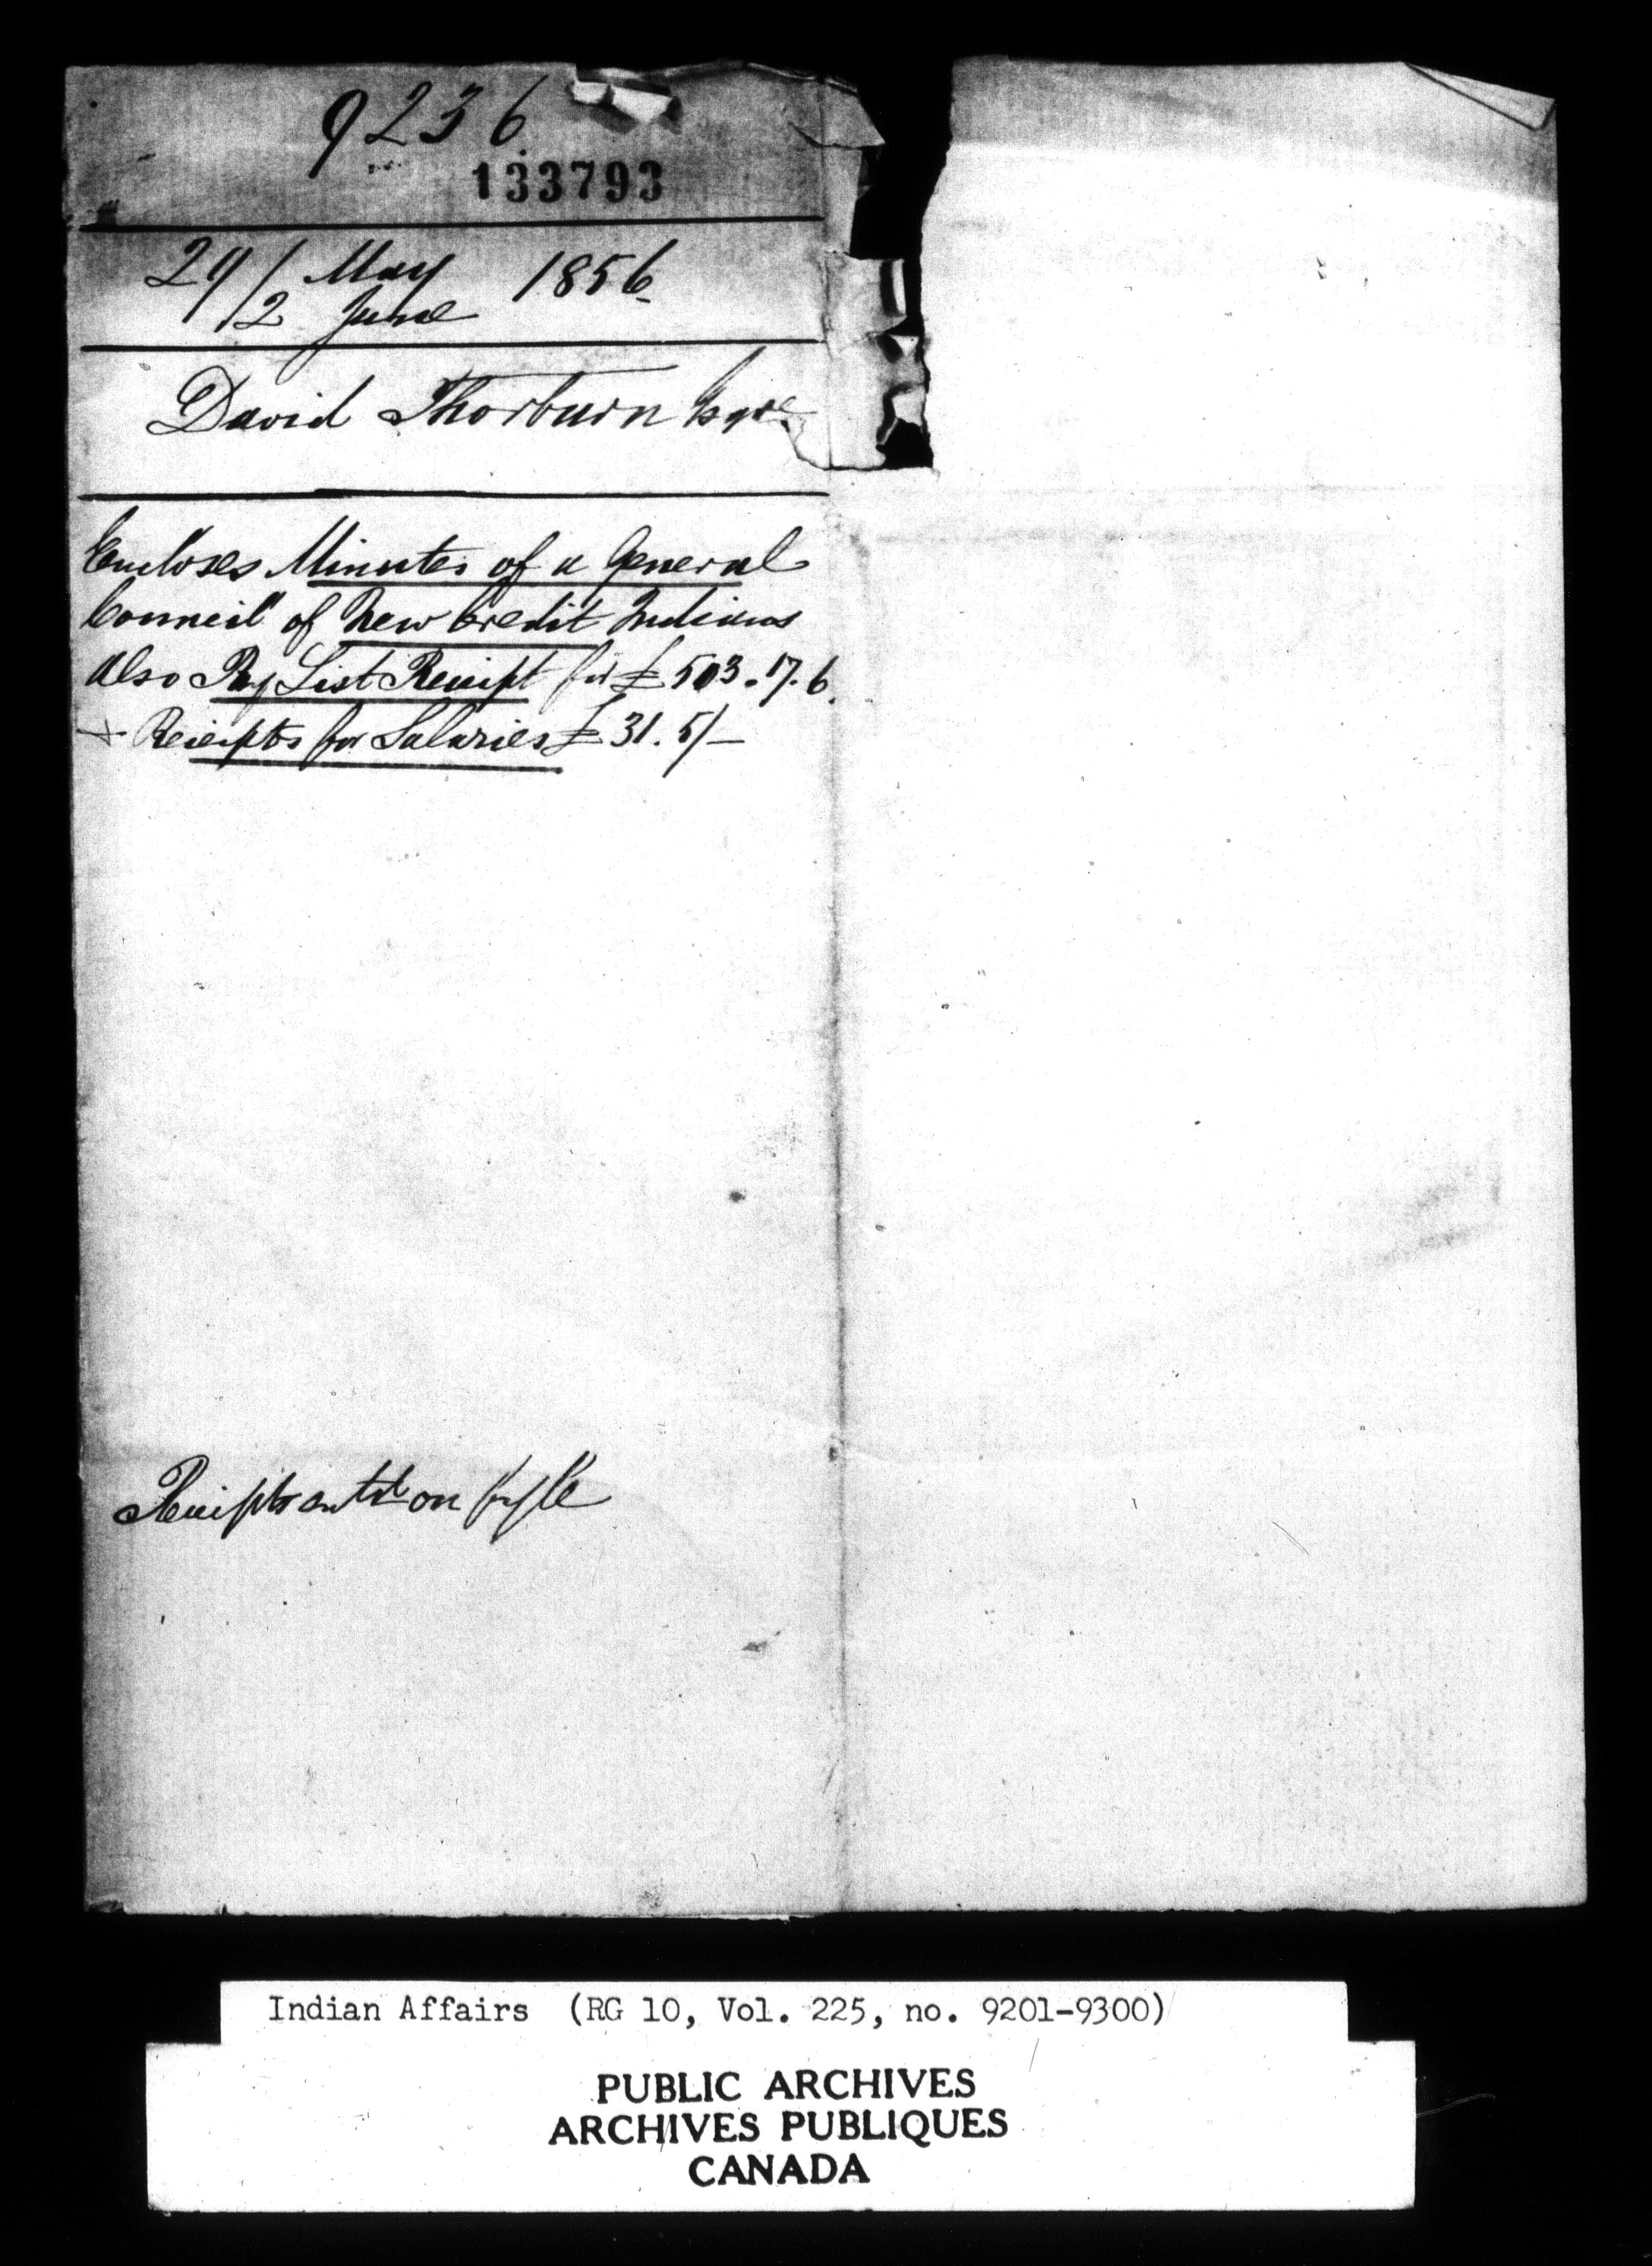 9236
133793
29/ May 1856
/2 June
David Thorburn Esqre
Encloses Minutes of a General
Council of New Credit Indians
also Pay List Receipt for £503.17.6
+ Receipts for Salaries £31.5/-
Receipts on fyle
Indian Affairs (RG 10, Vol. 225, no. 9201-9300)
PUBLIC ARCHIVES
ARCHIVES PUBLIQUES
CANADA